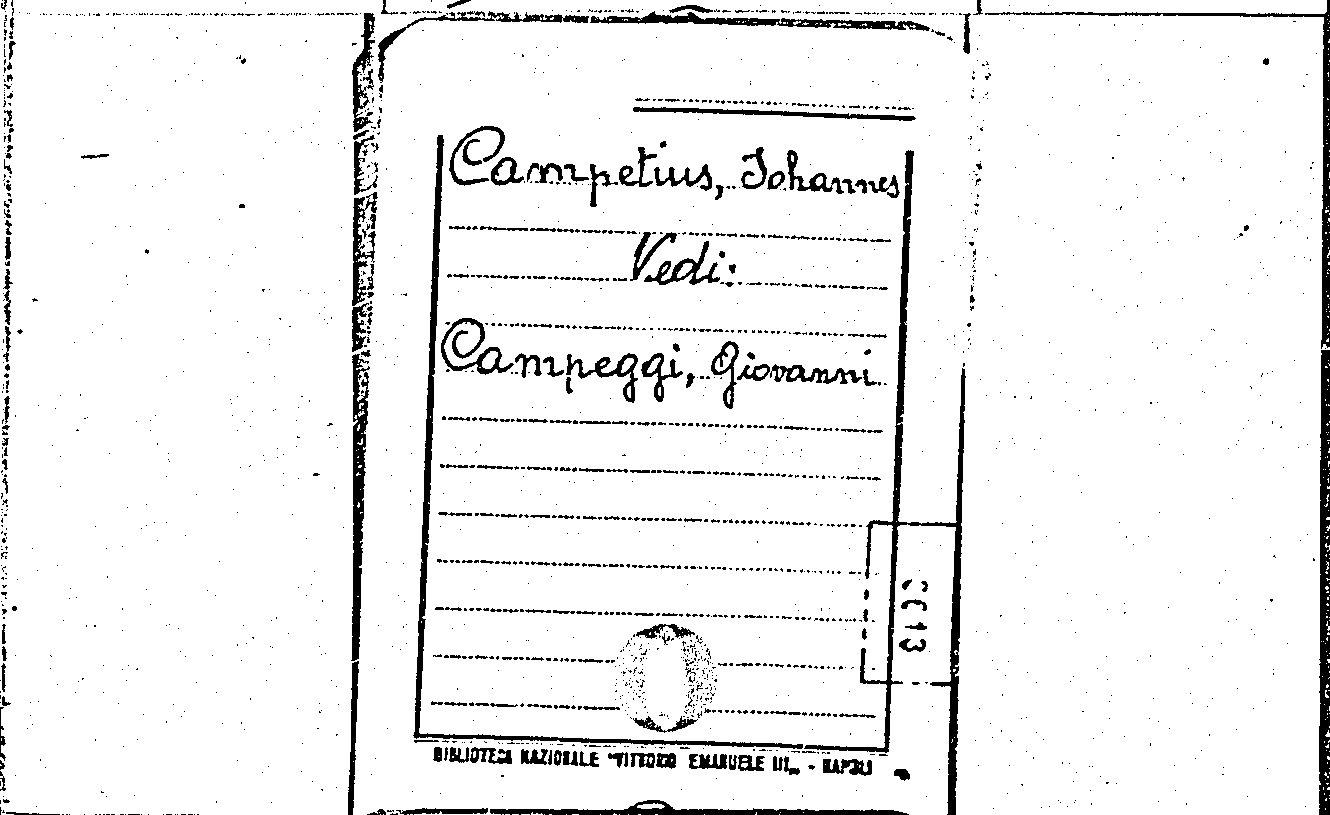 Campetius, Johannes
Vedi:
Campeggi, Giovanni
BIBLIOTECA NAZIONALE "VITTORIO EMANUELE III„ - NAPOLI